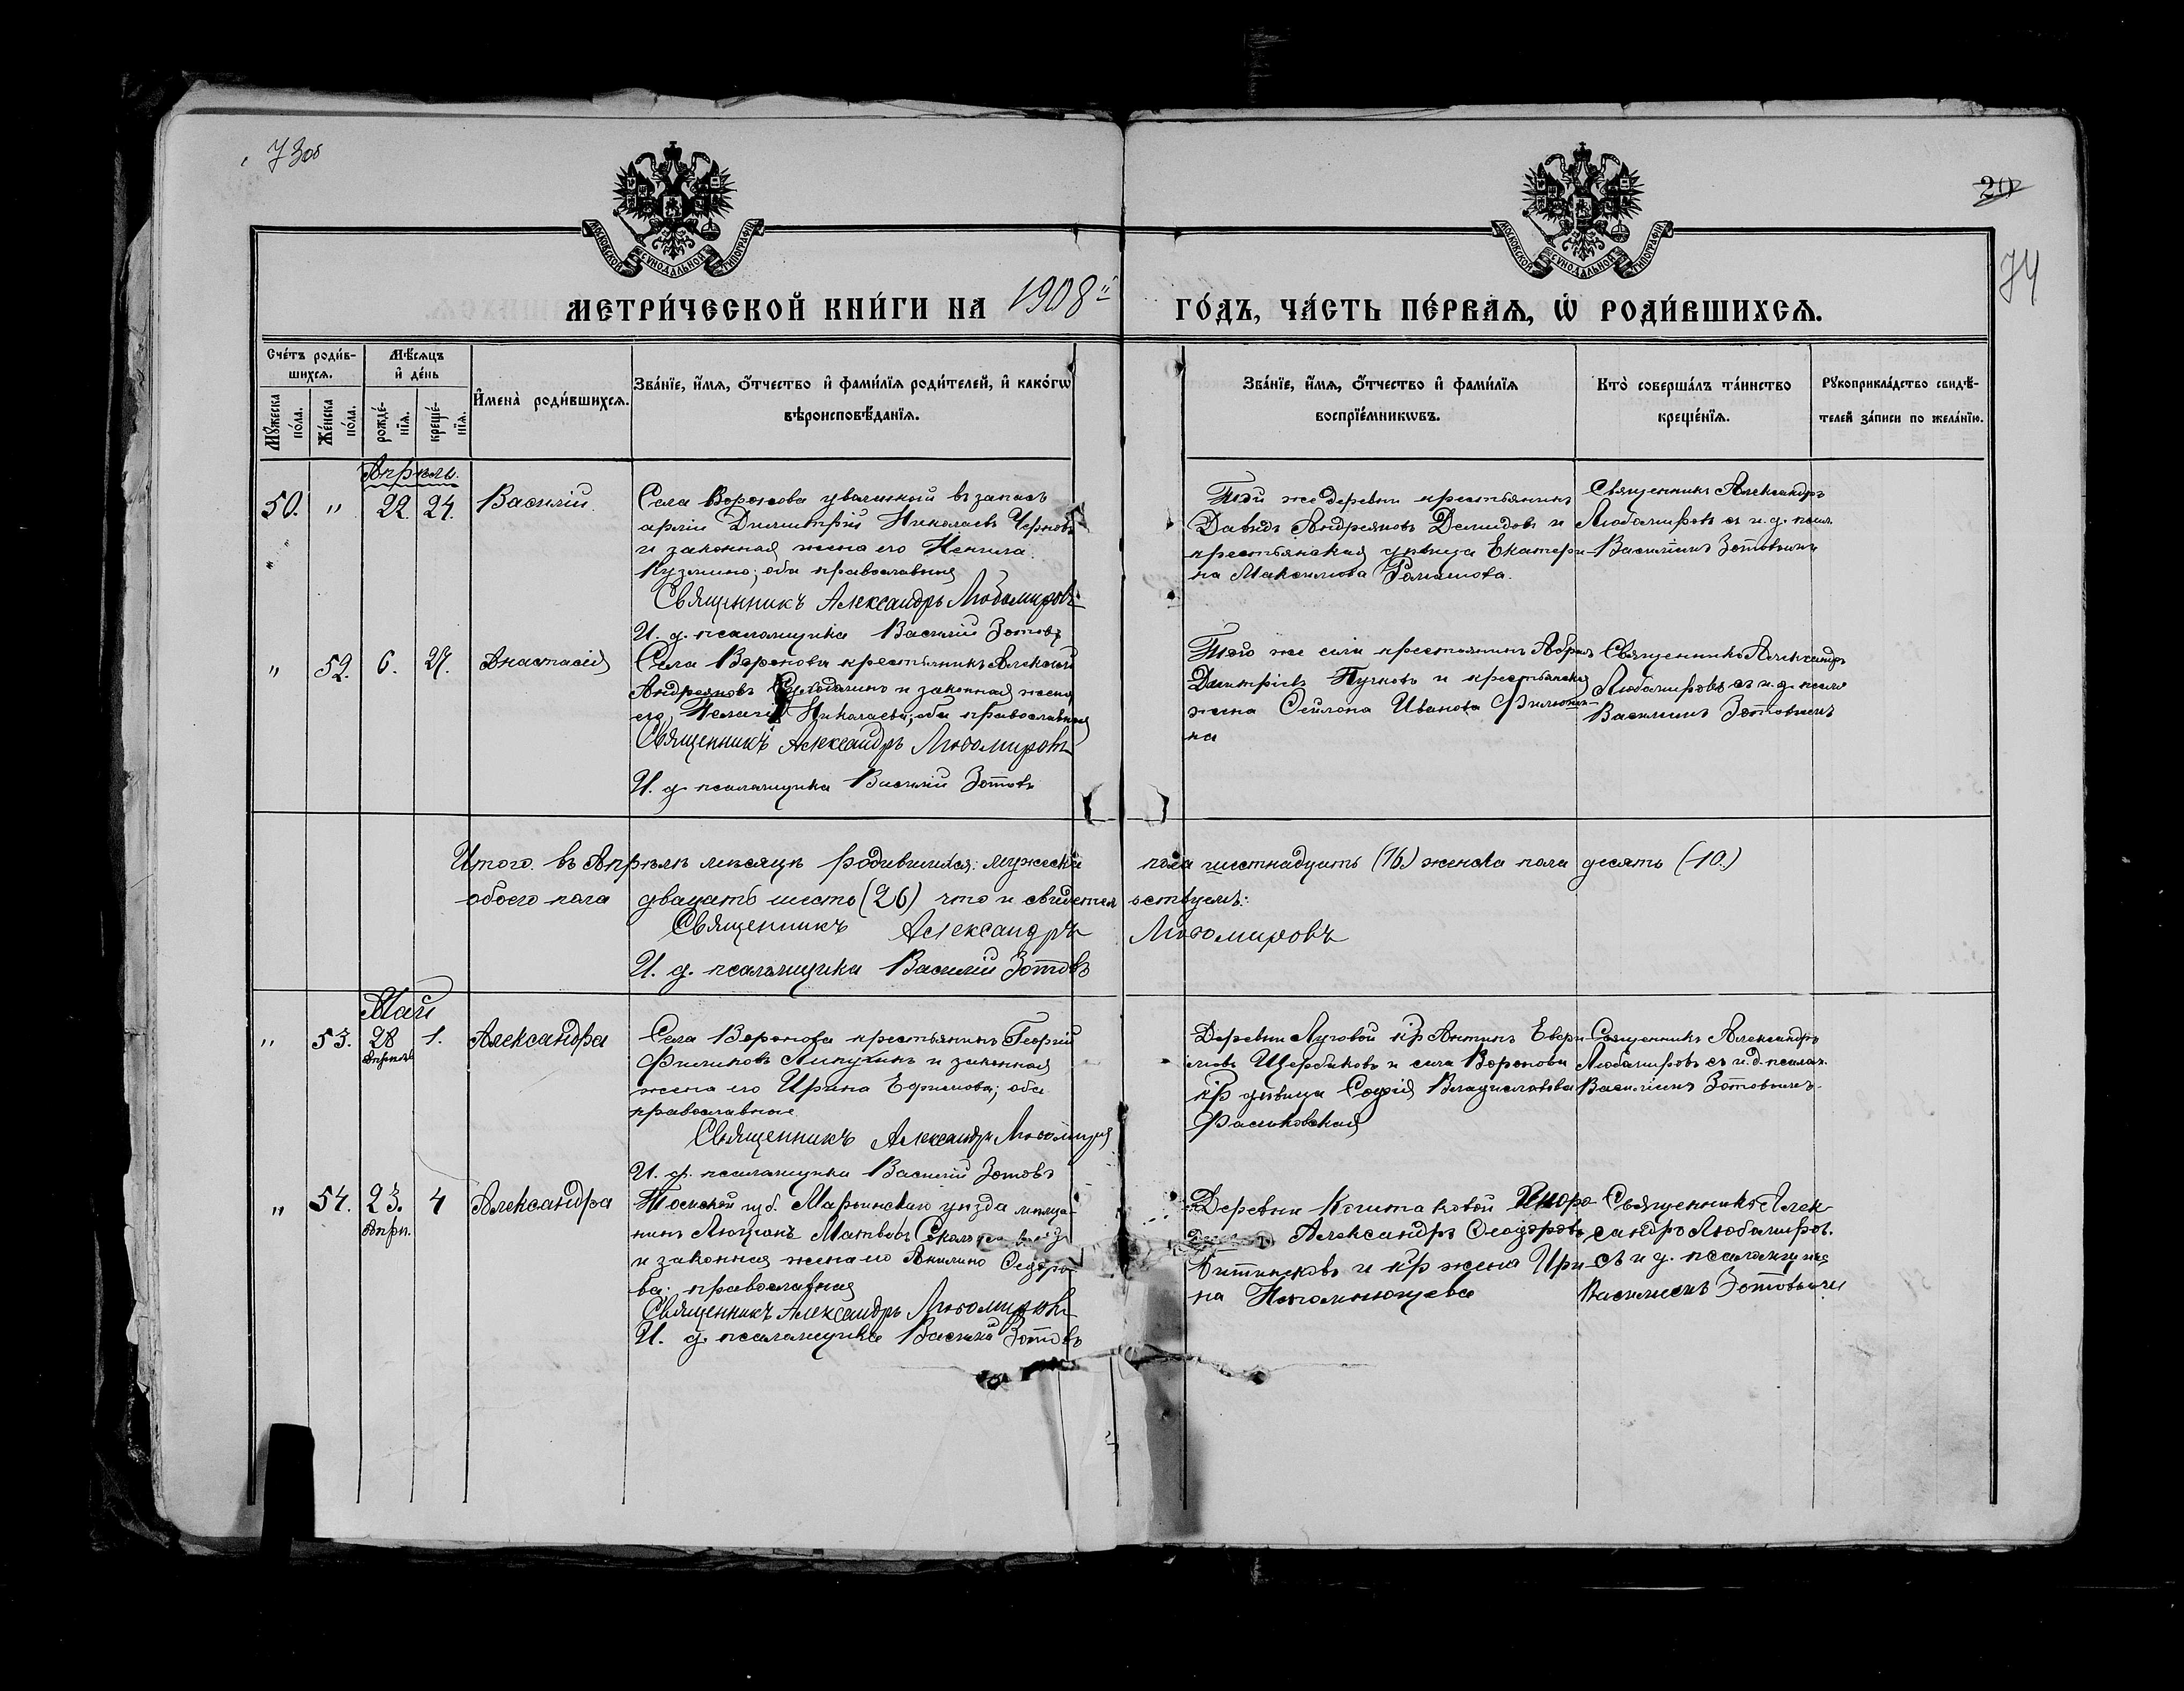 73об
20
74
МОСКОВСКОЙ СѴНОДАЛЬНОЙ ТИПОГРАФІИ
МОСКОВСКОЙ СѴНОДАЛЬНОЙ ТИПОГРАФІИ
МЕТРИ́ЧЕСКОЙ КНИ́ГИ НА 1908й ГО́ДЪ, ЧА́СТЬ ПЕ́РВАѦ, Ѡ҆ РОДИ́ВШИХСѦ.
Сче́тъ роди́в-
шихсѧ.
Мꙋ́жеска по́ла.
Же́нска по́ла.
Мѣ́сѧцъ
и҆ де́нь
рожде́-
нїѧ.
креще́-
нїѧ.
И҆мена̀ роди́вшихсѧ.
Зва́нїе, и҆́мѧ, ѻ҆́тчество и҆ фами́лїѧ роди́телей, и҆ како́гѡ
вѣроисповѣ́данїѧ.
Зва́нїе, и҆́мѧ, ѻ҆́тчество и҆ фами́лїѧ
воспрїе́мникѡвъ.
Кто̀ соверша́лъ та́инство
креще́нїѧ.
Рꙋкоприкла́дство свидѣ́-
телей за́писи по жела́нїю.
Апрѣль.
50. " 22. 24. Василій.
Села Воронова уволенный въ запасъ
арміи Димитрій Николаевъ Черновъ
и законная жена его
Кузмина; оба православные
Священникъ Александръ Любомировъ
И. д. псаломщика Василій Зотовъ
Той же деревни крестьянинъ
Давидъ Андреяновъ Демидовъ и
крестьянская дѣвица Екатери-
на Максимова Романова.
Священникъ Александръ
Любомировъ съ и. д. псал.
Василіемъ Зотовымъ
" 52. 6. 27. Анастасія
Села Воронова крестьянинъ Алексѣй
Андреяновъ и законная жена
его, Пелагія Николаева; оба православные
Священникъ Александръ Любомировъ
И. д. псаломщика Василій Зотовъ
Того же села крестьянинъ
Димитріевъ Пучковъ и крестьянская
жена Иванова
на
Священникъ Александръ
Любомировъ съ и. д. псалом
Василіемъ Зотовымъ
Итого въ Апрѣлѣ мѣсяцѣ родившихся: мужеска пола шестнадцать (16) женска пола десять (10.)
обоего пола двацать шесть (26) что и свидетельствуемъ:
Священникъ Александръ Любомировъ
И. д. псаломщика Василій Зотовъ
Май
" 53. 28 Апрѣля 1. Александра
Села Воронова крестьянинъ Георгій
Филиповъ Липухинъ и законная
жена его Ирина Ефимова; оба
православные
Священникъ Александръ Любомировъ
И. д. псаломщика Василій Зотовъ
Деревни Луговой кр Антипъ
Щербаковъ и села Воронова
кр дѣвица Софія Владиславова
Фальковская
Священникъ Александръ
Любомировъ съ и. д. псалом.
Василіемъ Зотовымъ.
" 54. 23. Апрѣ. 4 Александра
Томской губ. Маріинскаго уѣзда мѣща-
нинъ Матвѣевъ
и законная жена его Акилина Седоро-
ва; православная
Священникъ Александръ Любомировъ
И. д. псаломщика Василій Зотовъ
Деревни
Александръ Феодоровъ
и кр жена Ири-
на
Священникъ Алек-
сандръ Любомировъ.
съ и д. псаломщика
Василіемъ Зотовымъ